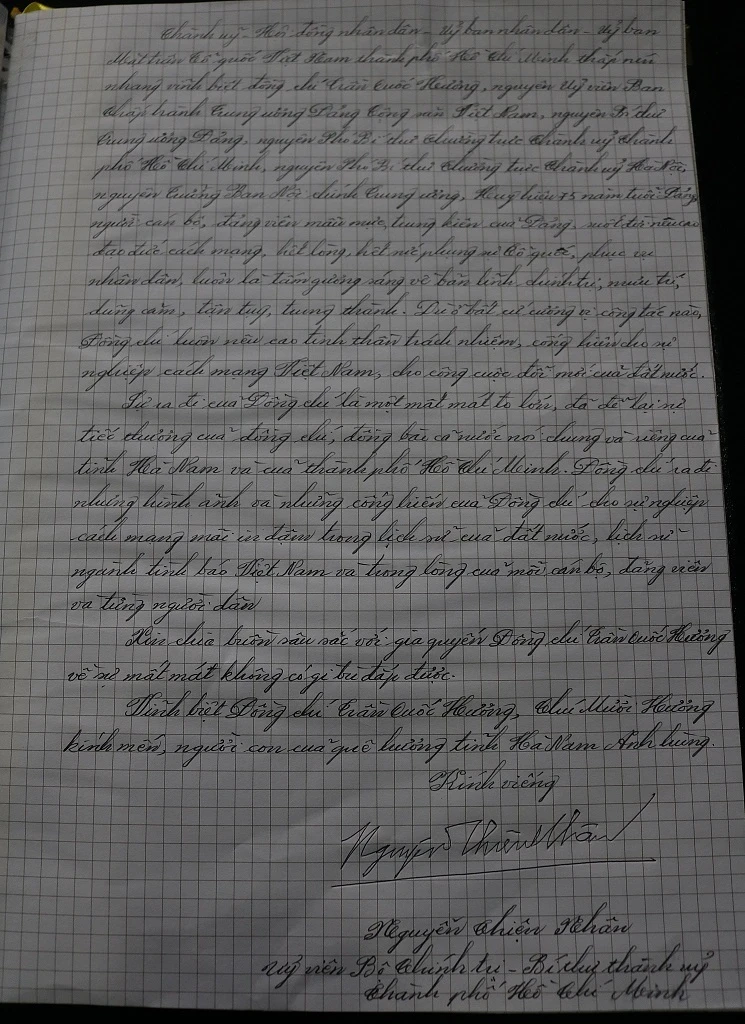 Thành uỷ - Hội đồng nhân dân - Uỷ ban nhân dân - Uỷ ban
Mặt trận Tổ quốc Việt Nam thành phố Hồ Chí Minh thắp nén
nhang vĩnh biệt đồng chí Trần Quốc Hương, nguyên Uỷ viên Ban
Chấp hành Trung ương Đảng Cộng sản Việt Nam, nguyên Bí thư
Trung ương Đảng, nguyên Phó Bí thư Thường trực Thành uỷ Thành
phố Hồ Chí Minh, nguyên Phó Bí thư Thường trực Thành uỷ Hà Nội,
nguyên Trưởng Ban Nội chính Trung ương, Huy hiệu 75 năm tuổi Đảng,
người cán bộ, đảng viên mẫu mực, trung kiên của Đảng, suốt đời nêu cao
đạo đức cách mạng, hết lòng, hết sức phụng sự Tổ quốc, phục vụ
nhân dân, luôn là tấm gương sáng về bản lĩnh chính trị, mưu trí,
dũng cảm, tận tuỵ, trung thành. Dù ở bất cứ cương vị công tác nào,
Đồng chí luôn nêu cao tinh thần trách nhiệm, cống hiến cho sự
nghiệp cách mạng Việt Nam, cho công cuộc đổi mới của đất nước.
Sự ra đi của Đồng chí là một mất mát to lớn, đã để lại sự
tiếc thương của đồng chí, đồng bào cả nước nói chung và riêng của
tỉnh Hà Nam và của thành phố Hồ Chí Minh. Đồng chí ra đi
nhưng hình ảnh và những cống hiến của Đồng chí cho sự nghiệp
cách mạng mãi in đậm trong lịch sử của đất nước, lịch sử
ngành tình báo Việt Nam và trong lòng của mỗi cán bộ, đảng viên
và từng người dân
Xin chia buồn sâu sắc với gia quyến Đồng chí Trần Quốc Hương
về sự mất mát không có gì bù đắp được.
Vĩnh biệt Đồng chí Trần Quốc Hương, Chú Mười Hương
kính mến, người con của quê hương tỉnh Hà Nam Anh hùng.
Kính viếng
Nguyễn Thiện Nhân
Nguyễn Thiện Nhân
Uỷ viên Bộ Chính trị - Bí thư thành uỷ
Thành phố Hồ Chí Minh